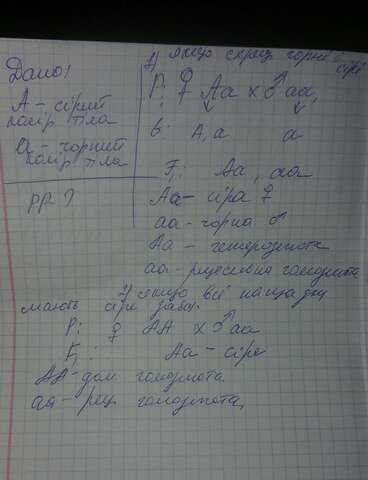 1) Якщо скрещ чорне і сірі
Дано:
А - сірий
колір тіла
а - чорний
колір тіла
PP-?
P: ♀ Аа x ♂ аа,
G: А, а а
F₁: Аа, аа
Аа - сіра ♀
аа - чорна ♂
Аа - гетерозигота
аа - рецесивна гомозигота
2) якщо всі нащадки
мають сіре забар.
P: ♀ АА x ♂ аа
F₁: Аа - сіре
АА - дом гомозигота
аа - рец гомозигота,